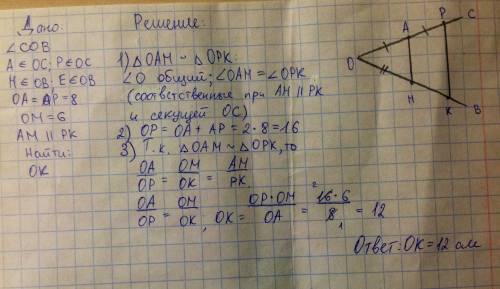 Дано:
∠COB
A ∈ OC; P ∈ OC
H ∈ OB; E ∈ OB
OA = AP = 8
OM = 6
AM || PK
Найти:
OK
Решение:
1) △OAM ~ △OPK:
∠O общий; ∠OAM = ∠OPK
(соответственные при AM || PK
и секущей OC)
2) OP = OA + AP = 2·8 = 16
3) Т.к. △OAM ~ △OPK, то
OA/OP = OM/OK = AM/PK
OA/OP = OM/OK, OK = OP·OM/OA = 16·6/8 = 12
2
1
Ответ: OK = 12 см
O
A
P
C
H
K
B